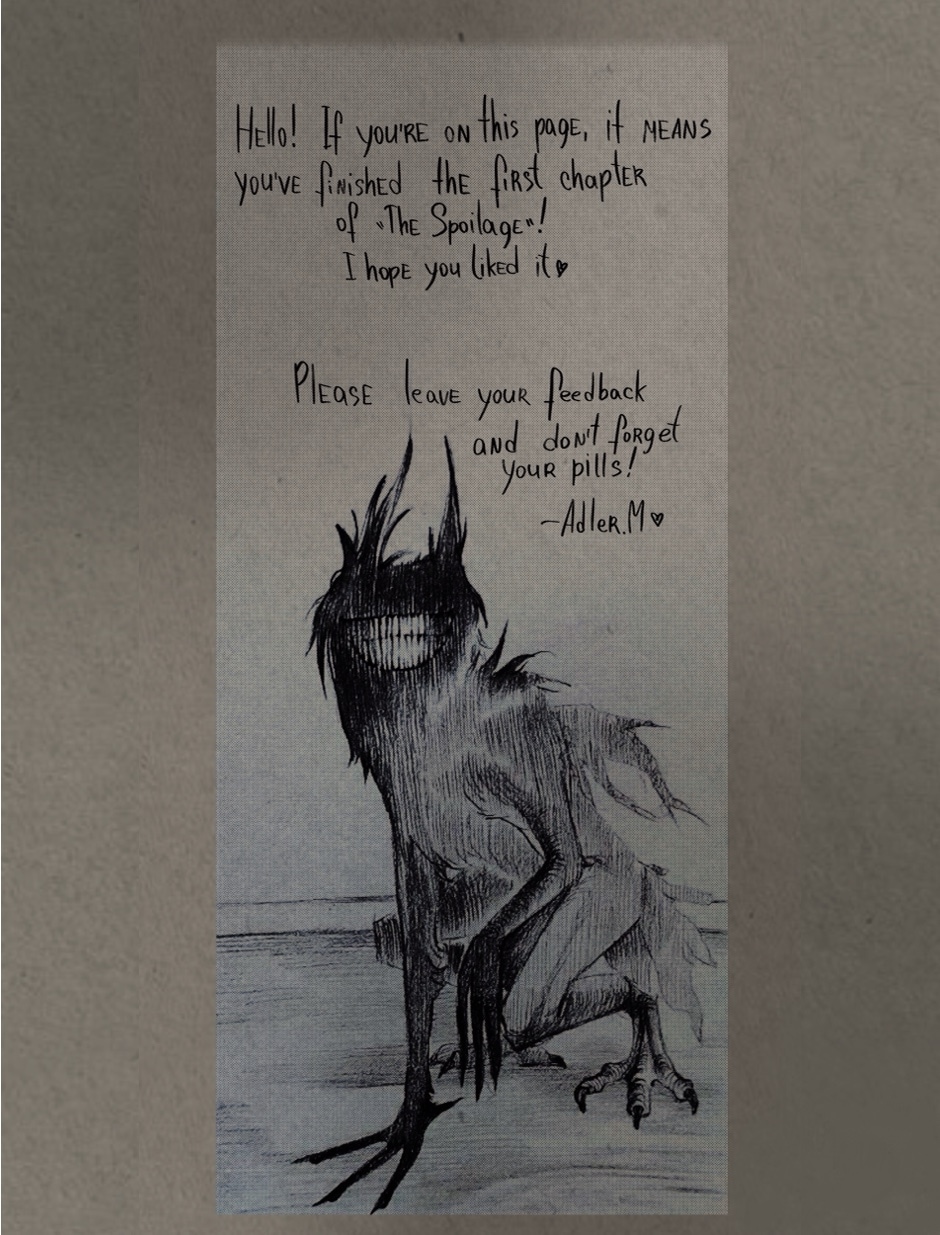 Hello! If you're on this page, it means
you've finished the first chapter
of "The Spoilage"!
I hope you liked it♥
Please leave your feedback
and don't forget
your pills!
—Adler.M♥